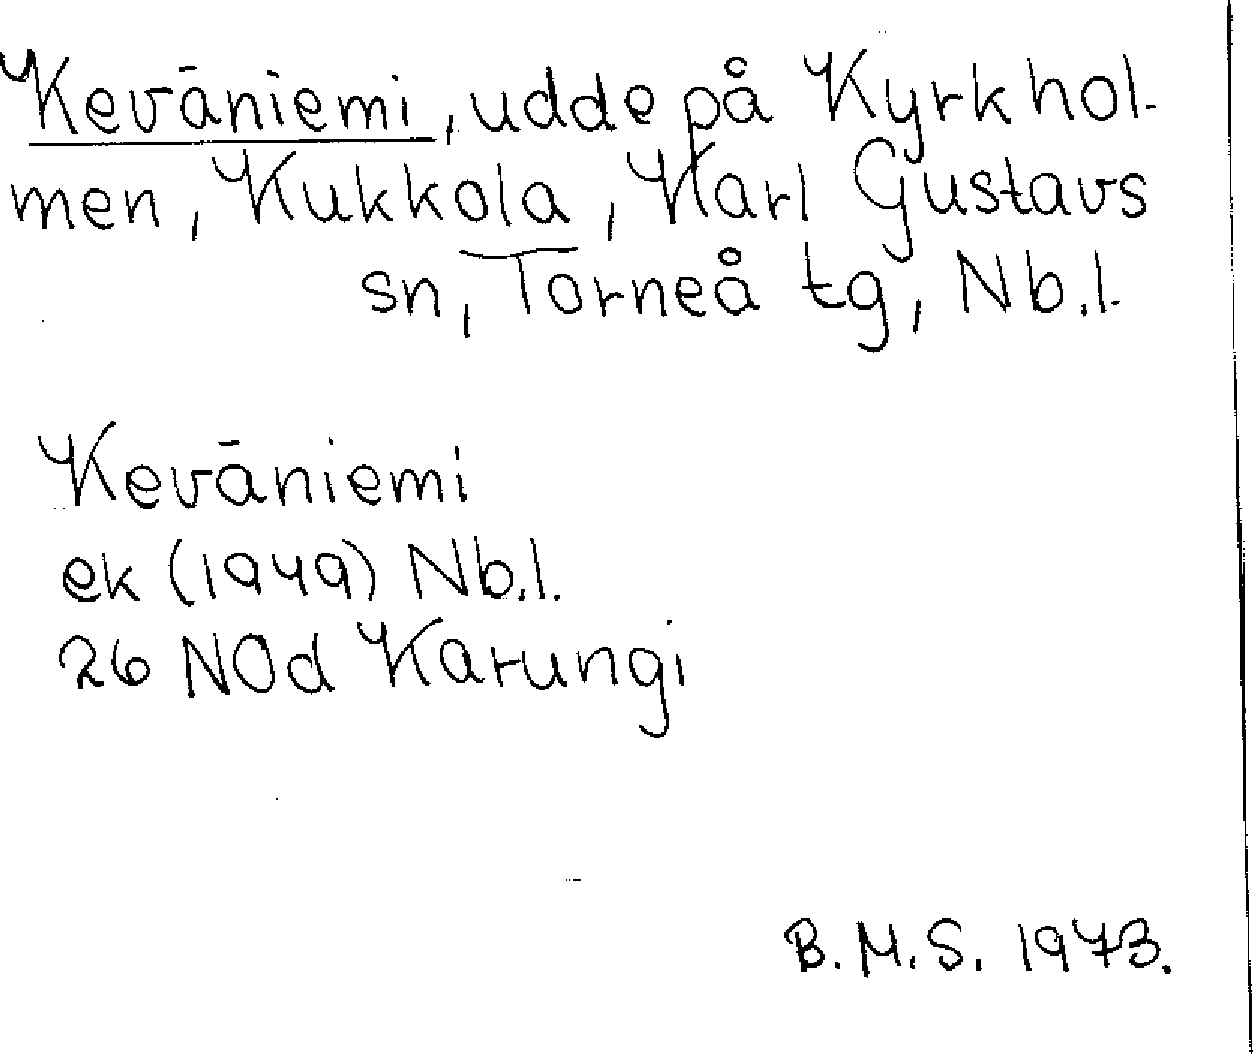 Keväniemi, udde på Kyrkhol-
men, Kukkola, Karl Gustavs
sn, Torneå tg, Nb.l.
Keväniemi
ek (1949) Nb.l.
26 NOd Karungi
B.M.S. 1973.